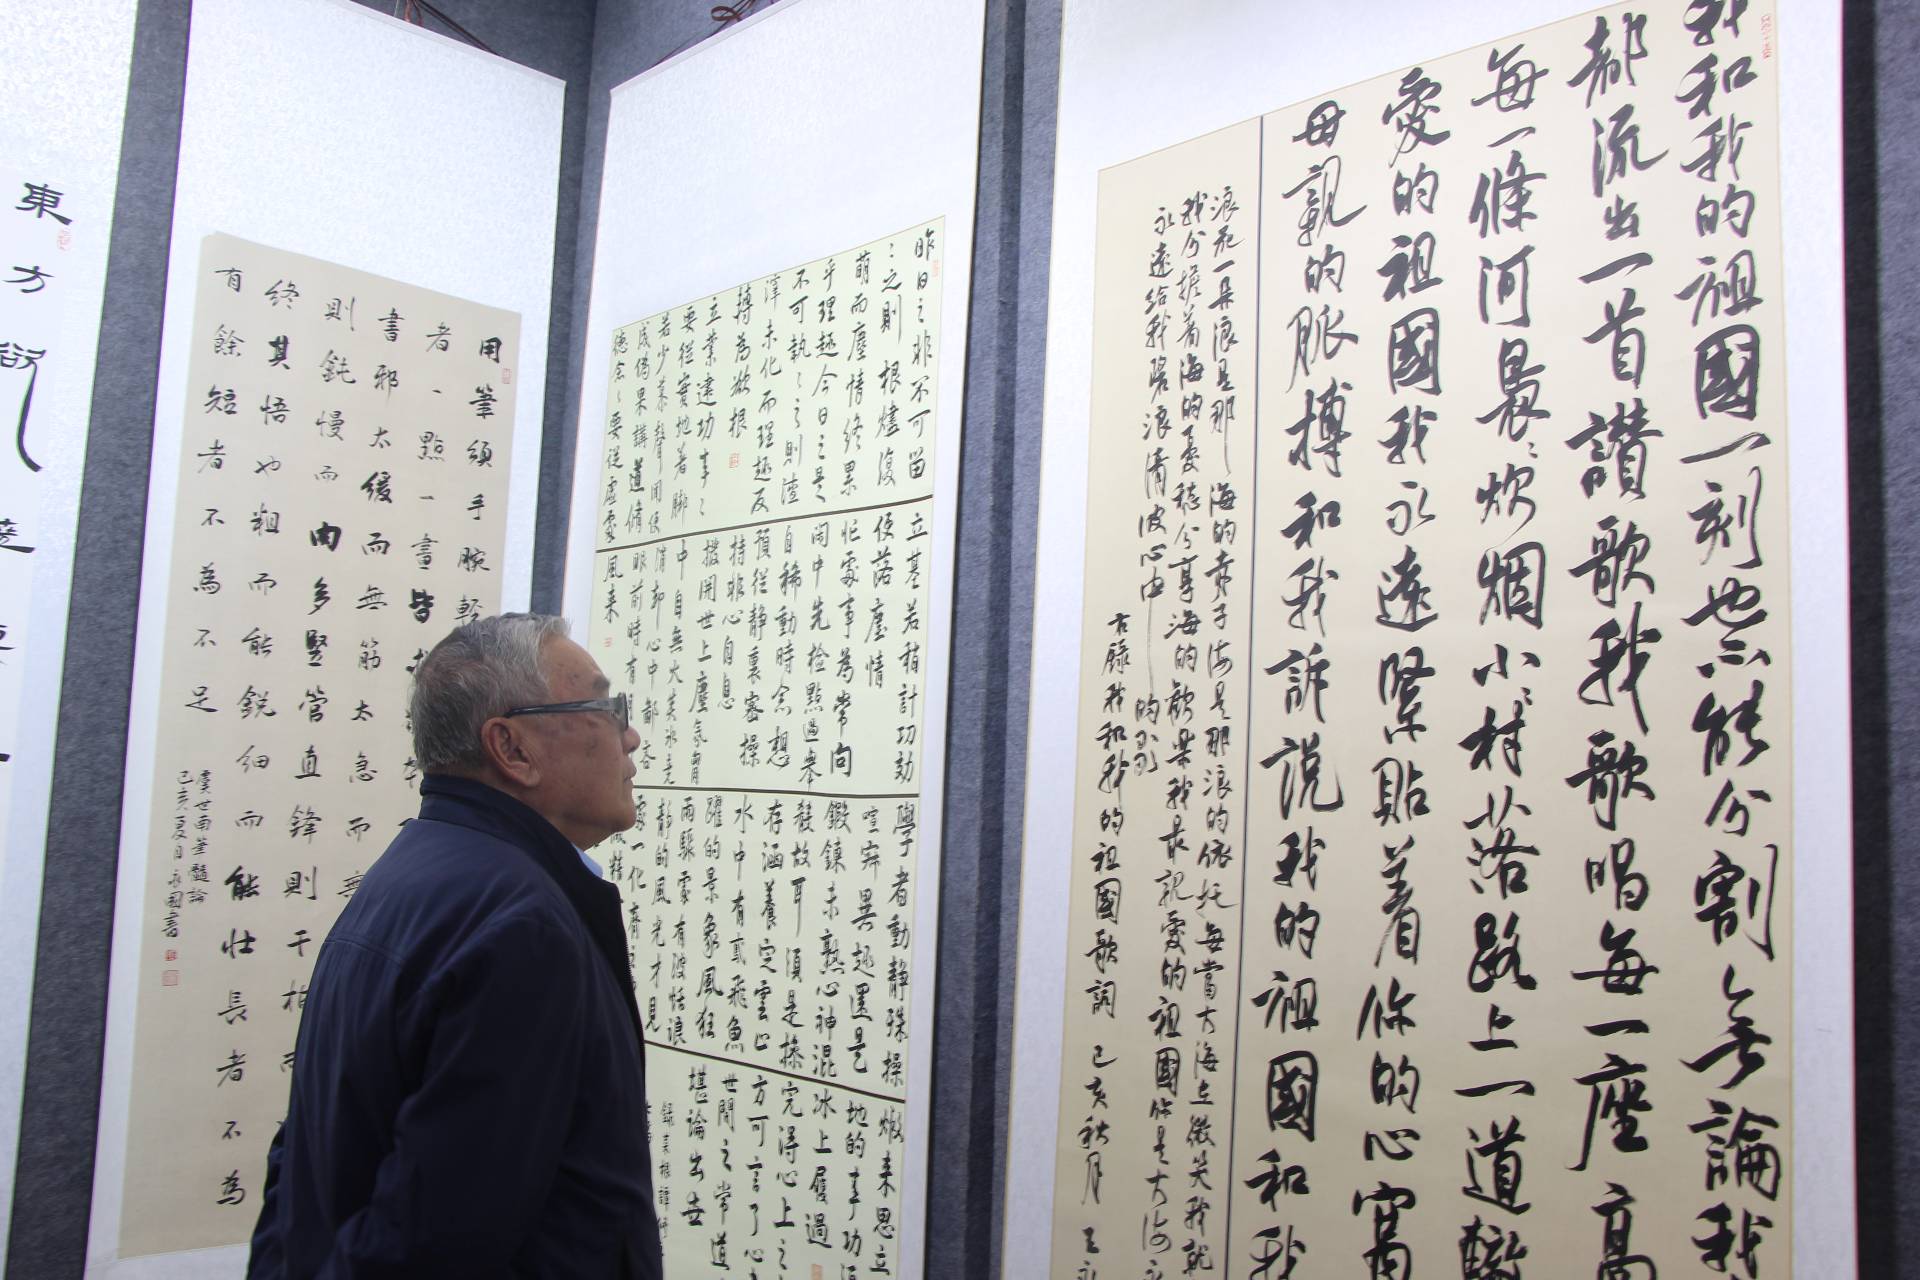 我和我的祖國一刻也不能分割無論我
都流出一首讚歌我歌唱每一座高
每一條河晨〻炊烟小〻村落路上一道轍
愛的祖國我永遠緊貼着你的心窩
母親的脈搏和我訴說我的祖國和我
浪花一朵浪是那〻海的赤子海是那浪的依托每當大海在微笑我就
我分擔着海的憂愁分享海的歡樂我最親愛的祖國你是大海永
永遠給我碧浪清波心中的歌
右錄我和我的祖國歌詞 己亥秋月 王永
昨日之非不可留
〻之則根燼復
萌而塵情終累
乎理趣今日之是
不可執〻之則渣
滓未化而理趣反
轉為欲根
立業建功事〻
要從實地着腳
若少慕聲聞便
成偽果講道脩
德念〻要從虛處
立基若稍計功効
便落塵情
忙處事為常向
閒中先檢點過舉
自稀動時念想
預從靜裏密操
持非心自息
撥開世上塵氛胷
中自無火炎冰兢
消卻心中鄙吝
眼前時有月
風来
學者動靜殊操
喧寂異趣還是
鍛鍊未熟心神混
殽故耳須是操
存涵養定雲止
水中有鳶飛魚
躍的景象風狂
雨驟處有波恬浪
靜的風光才見
處一化齊
嫩来思立
地的事功
冰上履過
完得心上之
方可言了心
世間之常道
堪論出世
錄菜根譚
用筆須手腕輕
者一點一畫皆
書邪太緩而無筋太急而無
則鈍慢而肉多竪管直鋒則干枯而
終其悟也粗而能銳細而能壯長者不為
有餘短者不為不足
虞世南筆髓論
己亥夏日永國書
東方欲